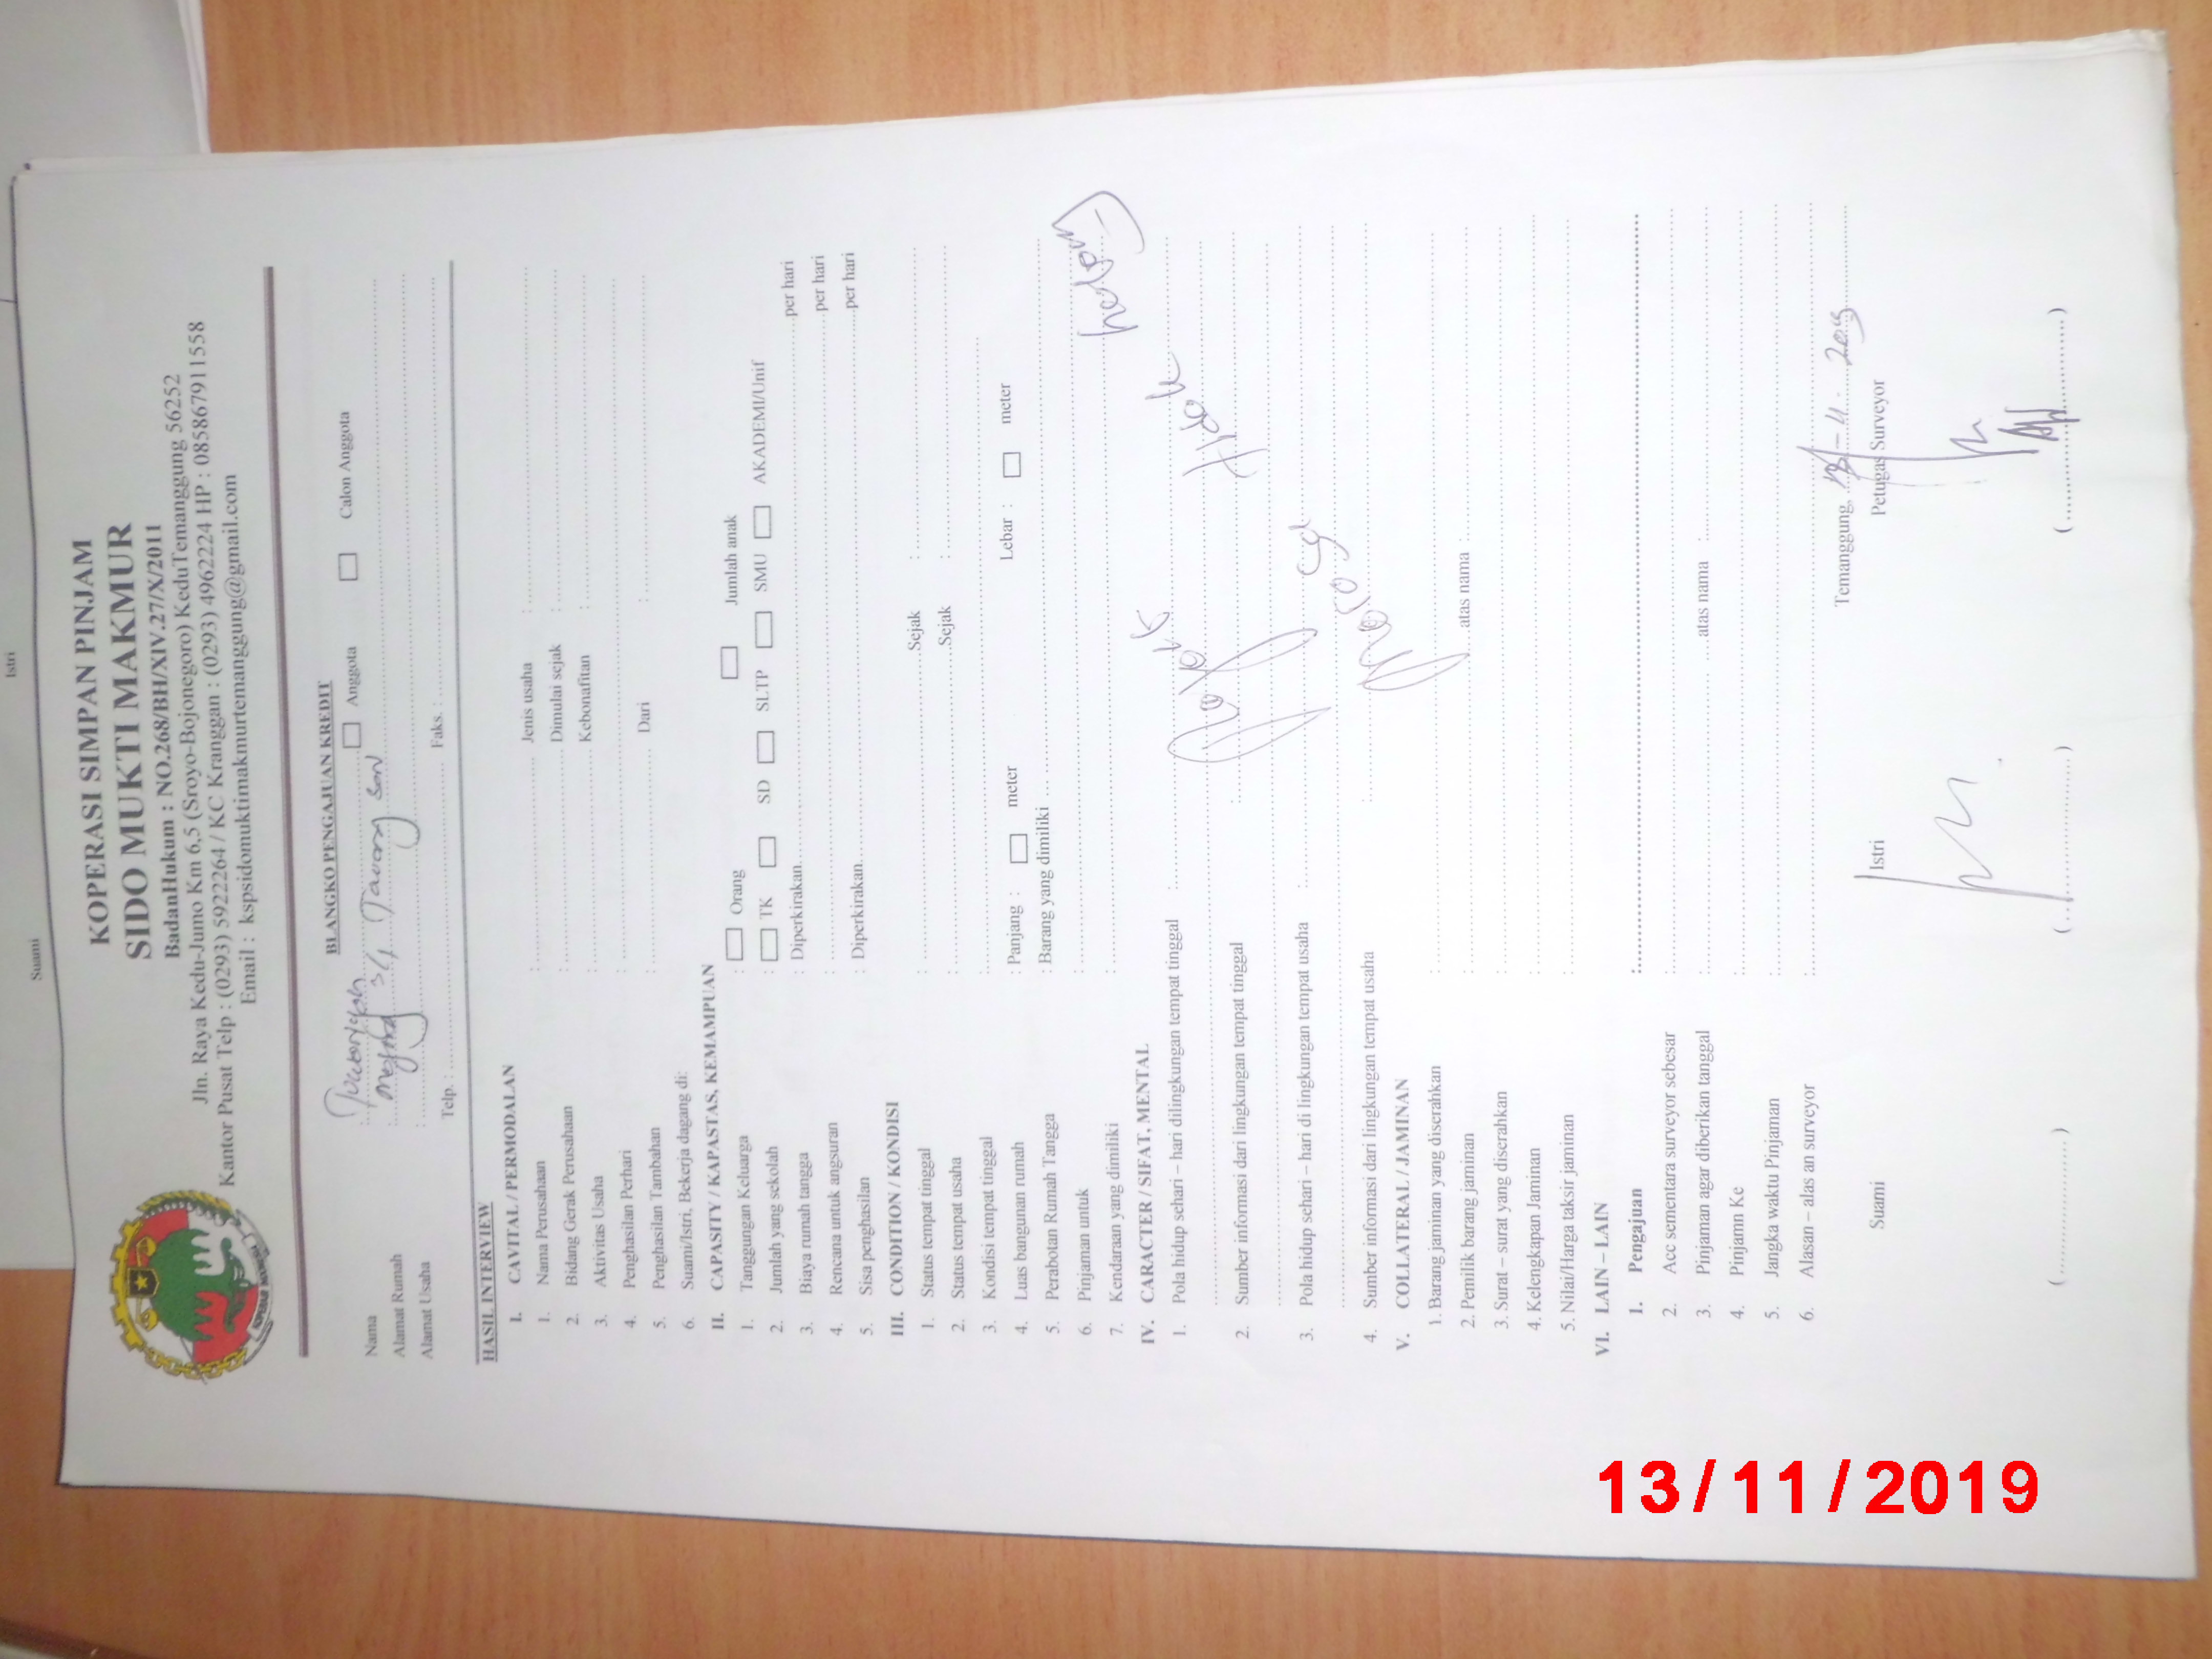 Suami
Istri
KOPERASI SIMPAN PINJAM
SIDO MUKTI MAKMUR
BadanHukum : NO.268/BH/XIV.27/X/2011
Jln. Raya Kedu-Jumo Km 6,5 (Sroyo-Bojonegoro) KeduTemanggung 56252
Kantor Pusat Telp : (0293) 5922264 / KC Kranggan : (0293) 4962224 HP : 085867911558
Email : kspsidomuktimakmurtemanggung@gmail.com
BLANGKO PENGAJUAN KREDIT
Nama : Anggota Calon Anggota
Alamat Rumah : 3/4
Alamat Usaha :
Telp. : Faks. :
HASIL INTERVIEW
I. CAVITAL / PERMODALAN
1. Nama Perusahaan : Jenis usaha :
2. Bidang Gerak Perusahaan : Dimulai sejak :
3. Aktivitas Usaha : Kebonafitan :
4. Penghasilan Perhari :
5. Penghasilan Tambahan : Dari :
6. Suami/Istri, Bekerja dagang di:
II. CAPASITY / KAPASTAS, KEMAMPUAN
1. Tanggungan Keluarga : Orang Jumlah anak
2. Jumlah yang sekolah : TK SD SLTP SMU AKADEMI/Unif
3. Biaya rumah tangga : Diperkirakan per hari
4. Rencana untuk angsuran : per hari
5. Sisa penghasilan : Diperkirakan per hari
III. CONDITION / KONDISI
1. Status tempat tinggal : Sejak :
2. Status tempat usaha : Sejak :
3. Kondisi tempat tinggal :
4. Luas bangunan rumah : Panjang : meter Lebar : meter
5. Perabotan Rumah Tangga : Barang yang dimiliki
6. Pinjaman untuk :
7. Kendaraan yang dimiliki :
IV. CARACTER / SIFAT, MENTAL
1. Pola hidup sehari – hari dilingkungan tempat tinggal :
2. Sumber informasi dari lingkungan tempat tinggal :
3. Pola hidup sehari – hari di lingkungan tempat usaha :
4. Sumber informasi dari lingkungan tempat usaha :
V. COLLATERAL / JAMINAN
1. Barang jaminan yang diserahkan :
2. Pemilik barang jaminan : atas nama :
3. Surat – surat yang diserahkan :
4. Kelengkapan Jaminan :
5. Nilai/Harga taksir jaminan :
VI. LAIN – LAIN
1. Pengajuan :
2. Acc sementara surveyor sebesar :
3. Pinjaman agar diberikan tanggal : atas nama :
4. Pinjamn Ke :
5. Jangka waktu Pinjaman :
6. Alasan – alas an surveyor :
Temanggung,
Suami Istri Petugas Surveyor
(..............) (..............) (..............)
13/11/2019